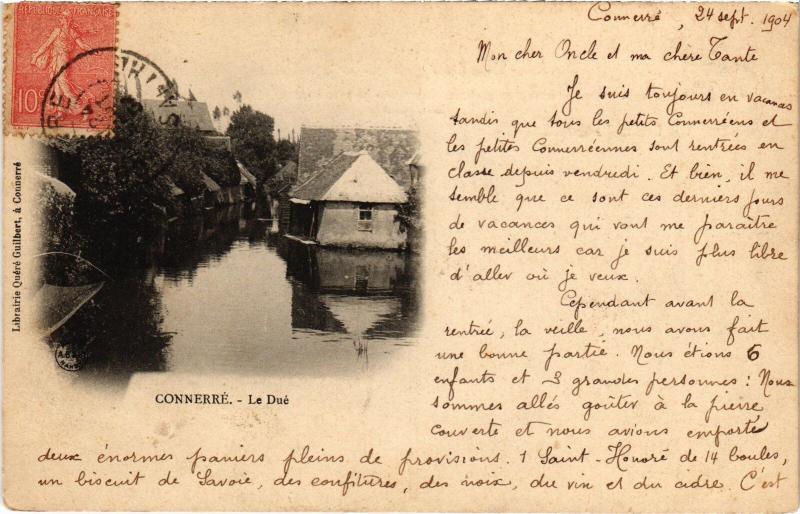 RÉPUBLIQUE FRANÇAISE
10
Librairie Quéré Guilbert, à Connerré
CONNERRÉ. - Le Dué
Connerré, 24 sept. 1904
Mon cher Oncle et ma chère Tante
Je suis toujours en vacances
tandis que tous les petits Connerréens et
les petites Connerréennes sont rentrées en
classe depuis vendredi. Et bien, il me
semble que ce sont ces derniers jours
de vacances qui vont me paraître
les meilleurs car je suis plus libre
d'aller où je veux.
Cependant avant la
rentrée, la veille, nous avons fait
une bonne partie. Nous étions 6
enfants et 3 grandes personnes : Nous
sommes allés goûter à la pierre
couverte et nous avions emporté
deux énormes paniers pleins de provisions. 1 Saint-Honoré de 14 boules,
un biscuit de Savoie, des confitures, des noix, du vin et du cidre. C'est